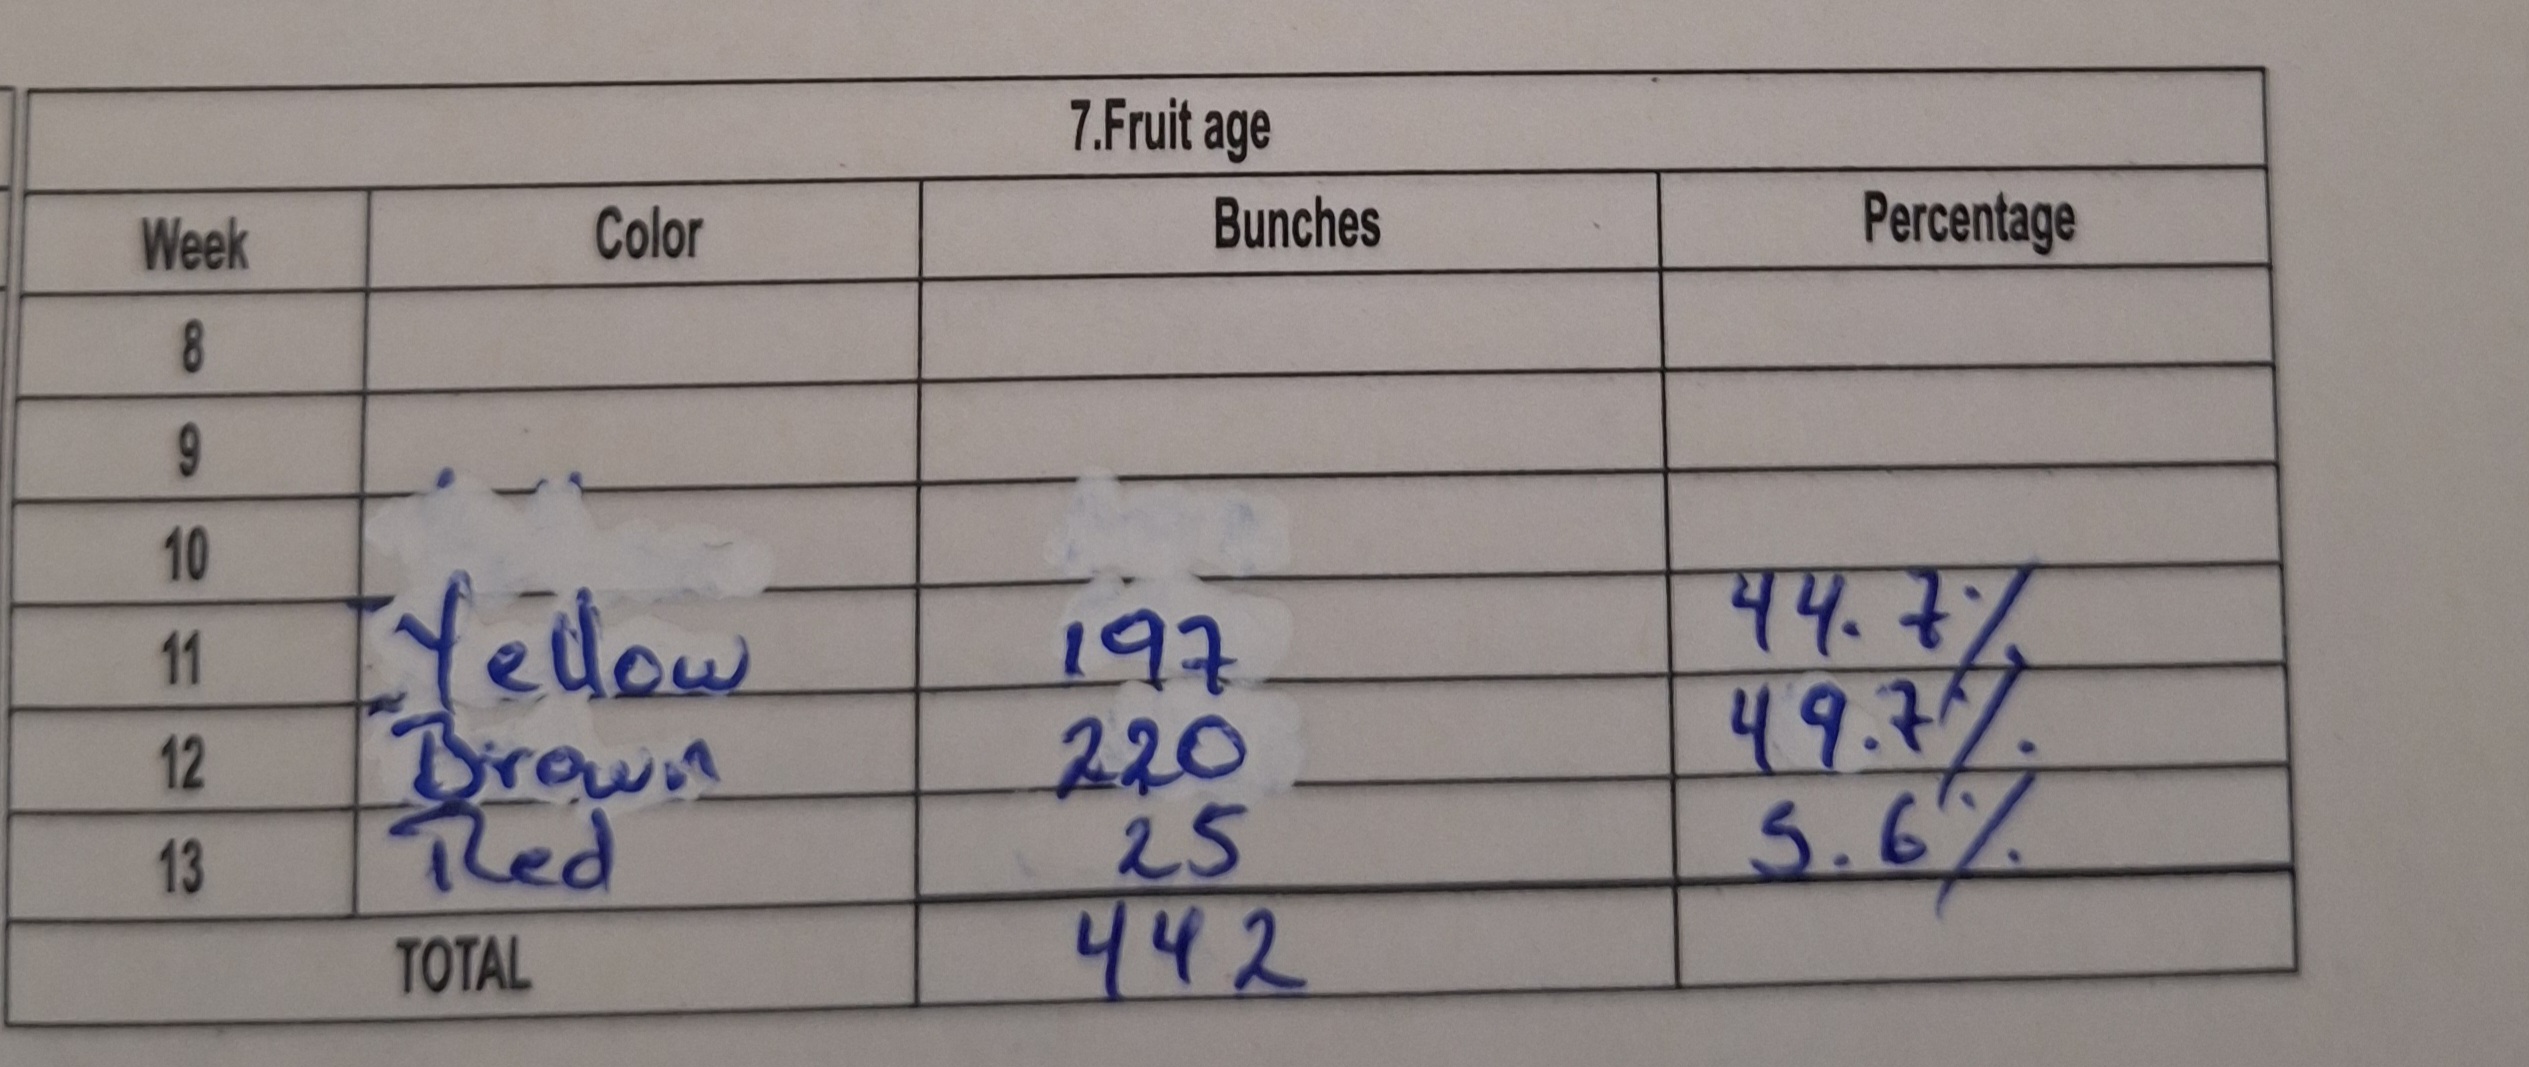 7.Fruit age
Week Color Bunches Percentage
8
9
10
11 Yellow 197 44.7%
12 Brown 220 49.7%
13 Red 25 5.6%
TOTAL 442